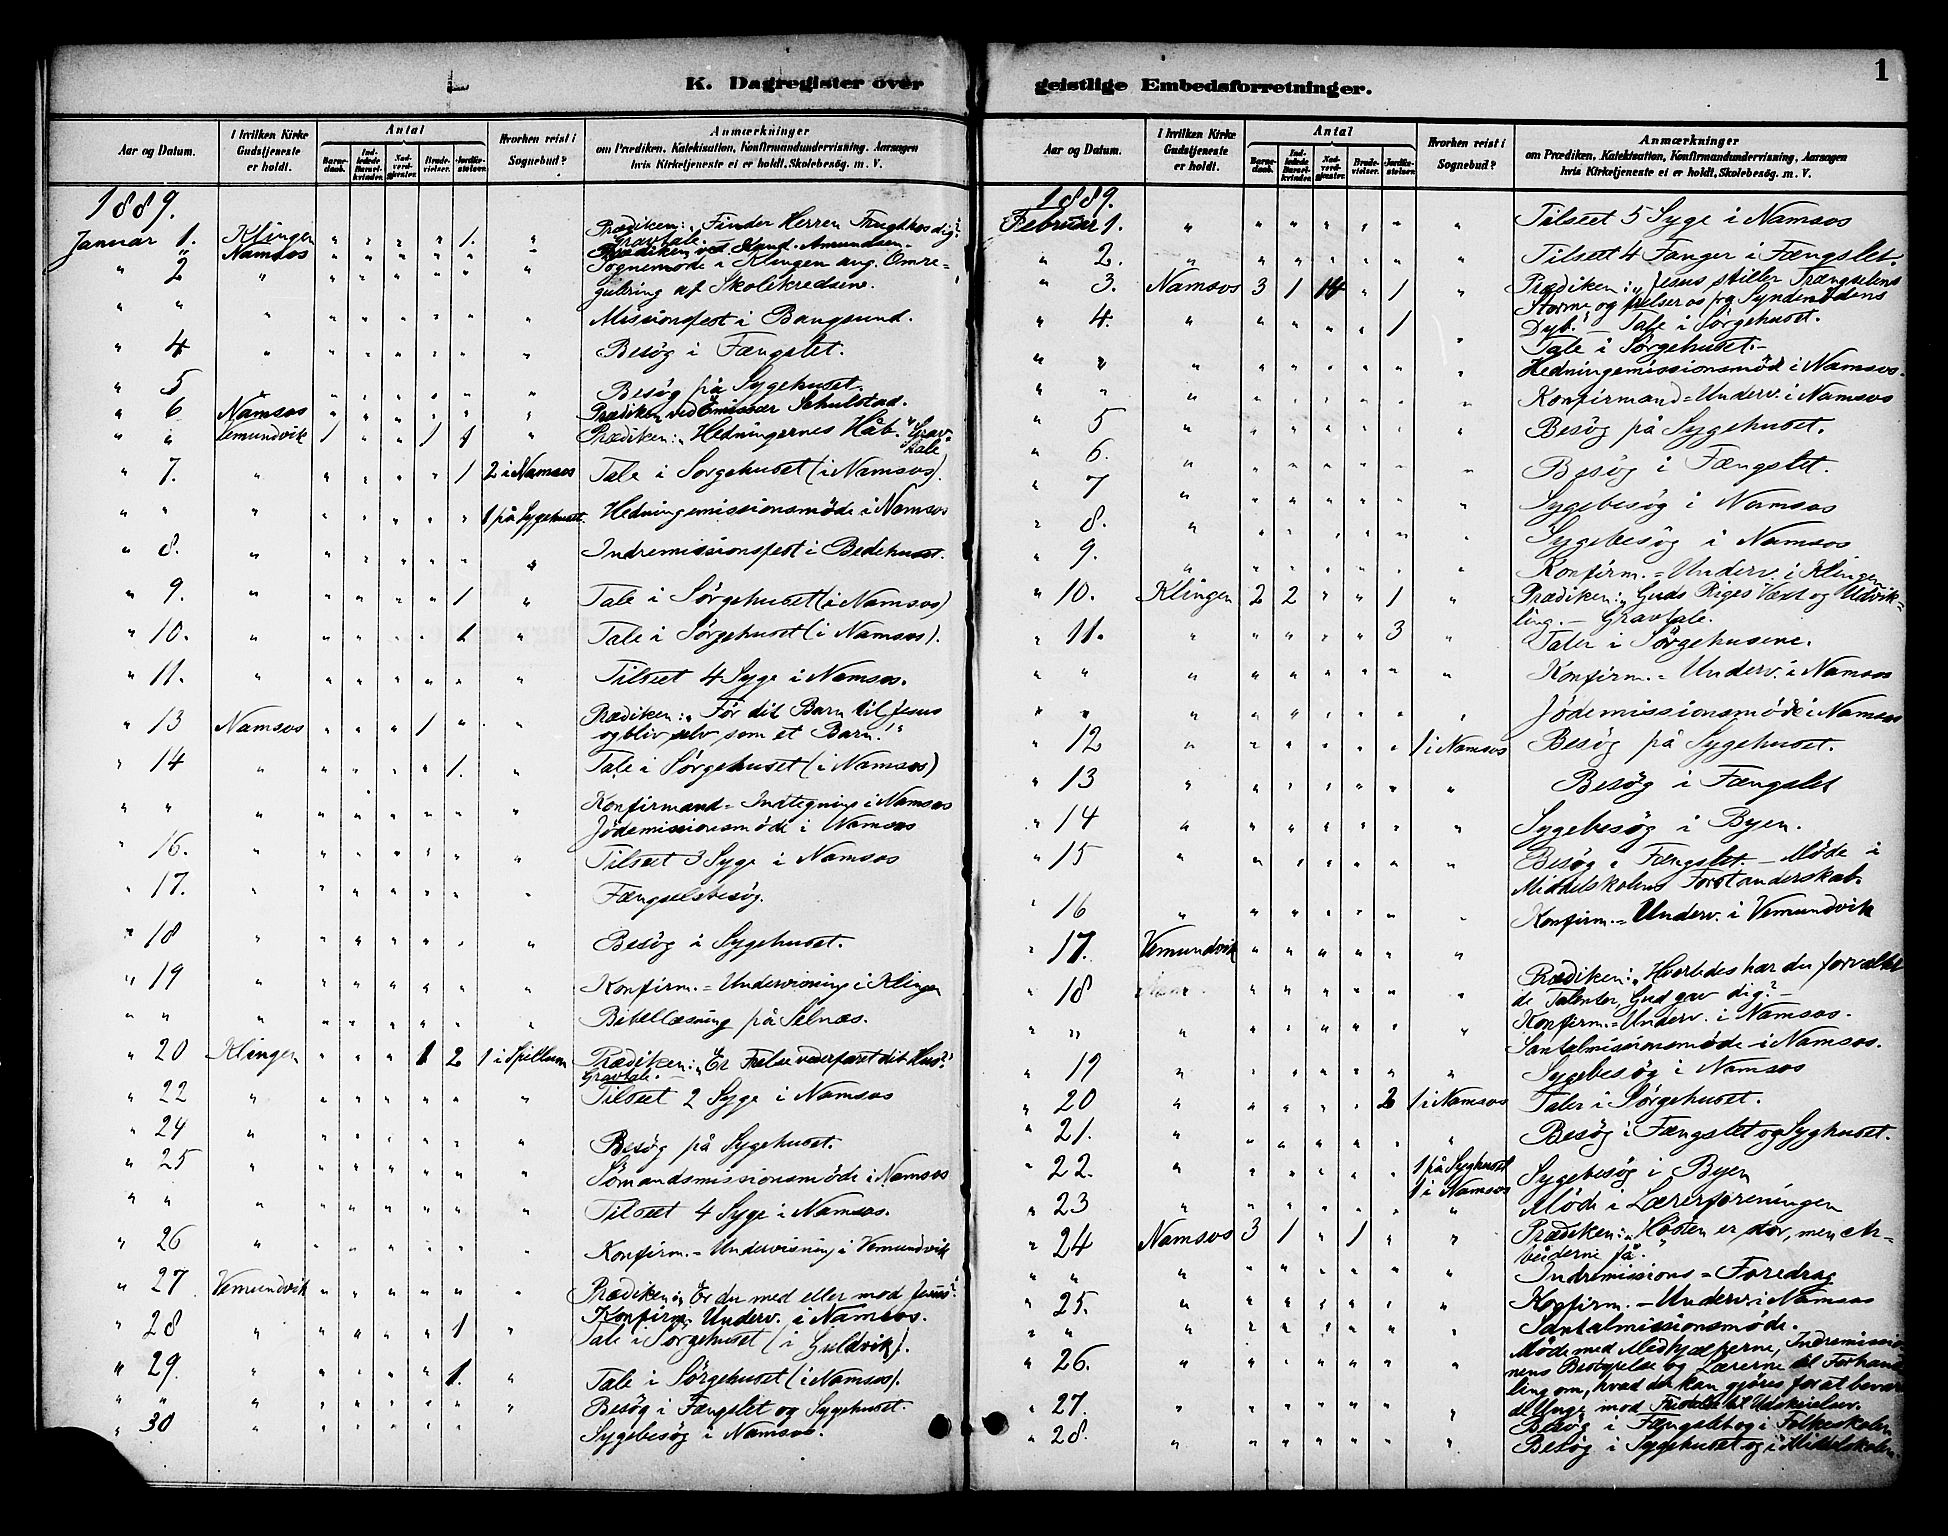 K. Dagregister over
Aar og Datum.
I hvilken Kirke Gudstjeneste er holdt.
Antal
Barne-daab.
Ind-ledede Barsel-kvinder.
Nad-verd-gjæster.
Brude-vielser.
Jordfæ-stelser.
Hvorhen reist i Sognebud?
Anmærkninger
om Prædiken, Katekisation, Konfirmandundervisning, Aarsagen
hvis Kirketjeneste ei er holdt, Skolebesøg. m. V.
1889.
Januar 1. Klingen " " " " 1. " Prædiken: "Finder Herren Frugt hos dig?"
Gravtale.
" " Namsos " " " " " " Prædiken ved Kand. Amundsen.
" 2 " " " " " " " Sognemøde i Klingen ang. Omre-
gulering af Skolekredsene.
" " " " " " " " " Missionsfest i Bangsund.
" 4 " " " " " " " Besøg i Fængslet.
" 5 " " " " " " " Besøg på Sygehuset.
" 6 Namsos " " " " " " Prædiken ved Emissær Schulstad.
" " Vemundvik 1 " " 1 1 " Prædiken: "Hedningernes Håb." Grav-
tale
" 7. " " " " " 1 2 i Namsos Tale i Sørgehuset (i Namsos).
" " " " " " " " 1 på Sygehuset. Hedningemissionsmøde i Namsos
" 8. " " " " " " " Indremissionsfest i Bedehuset.
" 9. " " " " " 1 " Tale i Sørgehuset (i Namsos)
" 10. " " " " " 1 " Tale i Sørgehuset (i Namsos).
" 11. " " " " " " " Tilseet 4 Syge i Namsos.
" 13 Namsos " " " 1 " " Prædiken: "Før dit Barn til Jesus
og bliv selv som et Barn!"
" 14 " " " " " 1. " Tale i Sørgehuset (i Namsos)
" " " " " " " " " Konfirmand= Indtegning i Namsos
Jødemissionsmøde i Namsos
" 16. " " " " " " " Tilseet 3 Syge i Namsos
" 17. " " " " " " " Fængselsbesøg.
" 18 " " " " " " " Besøg i Sygehuset.
" 19 " " " " " " " Konfirm.= Undervisning i Klingen
" " " " " " " " " Bibellæsning på Selnæs.
" 20 Klingen " " " 1 2 1 i Spillum Prædiken: "Er Frelse vederfaret dit Hus?"
Gravtale.
" 22 " " " " " " " Tilseet 2 Syge i Namsos
" 24 " " " " " " " Besøg på Sygehuset.
" 25 " " " " " " " Sømandsmissionsmøde i Namsos
" " " " " " " " " Tilseet 4 Syge i Namsos.
" 26 " " " " " " " Konfirm.= Undervisning i Vemundvik
" 27 Vemundvik " " " " " " Prædiken: "Er du med eller mod Jesus?"
Konfirm. Underv. i Namsos.
" 28 " " " " " 1 " Tale i Sørgehuset (i Guldvik).
" 29. " " " " " 1. " Tale i Sørgehuset (i Namsos).
" " " " " " " " " Besøg i Fængslet og Sygehuset.
" 30 " " " " " " " Sygebesøg i Namsos.
geistlige Embedsforretninger.
1
Aar og Datum.
I hvilken Kirke Gudstjeneste er holdt.
Antal
Barne-daab.
Ind-ledede Barsel-kvinder.
Nad-verd-gjæster.
Brude-vielser.
Jordfæ-stelser.
Hvorhen reist i Sognebud?
Anmærkninger
om Prædiken, Katekisation, Konfirmandundervisning, Aarsagen
hvis Kirketjeneste ei er holdt, Skolebesøg. m. V.
1889.
Februar 1. " " " " " " " Tilseet 5 Syge i Namsos
" 2. " " " " " " " Tilseet 4 Fanger i Fængslet.
" 3. Namsos 3 1 14 " 1 " Prædiken: "Jesus stiller Trængselens
Storme og frelser os fra Syndenødens
Dyb." - Tale i Sørgehuset.
" 4. " " " " " 1 " Tale i Sørgehuset. -
" " " " " " " " " Hedningemissionsmøde i Namsos.
" " " " " " " " " Konfirmand= Underv. i Namsos
" 5 " " " " " " " Besøg på Sygehuset.
" 6. " " " " " " " Besøg i Fængslet.
" 7 " " " " " " " Sygebesøg i Namsos
" 8. " " " " " " " Sygebesøg i Namsos
" 9. " " " " " " " Konfirm.= Underv. i Klingen
" 10. Klingen 2 2 " " 1 " Prædiken: "Guds Riges Vext og Udvik=
ling. - Gravtale.
" 11. " " " " " 3 " Taler i Sørgehusene.
" " " " " " " " " Konfirm.= Underv. i Namsos
" " " " " " " " " Jødemissionsmøde i Namsos
" 12 " " " " " " 1 i Namsos Besøg på Sygehuset.
" 13 " " " " " " " Besøg i Fængslet
" 14 " " " " " " " Sygebesøg i Byen.
" 15 " " " " " " " Besøg i Fængslet. - Møde i
Middelskolens Forstanderskab.
" 16 " " " " " " " Konfirm.= Underv. i Vemundvik
" 17. Vemundvik " " " " " " Prædiken: "Hvorledes har du forvaltet
de Talenter, Gud gav dig?" -
" 18 " " " " " " " Konfirm.= Underv. i Namsos.
" " " " " " " " " Santalmissionsmøde i Namsos.
" 19 " " " " " " " Sygebesøg i Namsos
" 20 " " " " " 2 1 i Namsos Taler i Sørgehuset.
" 21. " " " " " " " Besøg i Fængslet og Syghuset.
" 22. " " " " " " 1 på Syghuset Sygebesøg i Byen
1 i Namsos
" 23 " " " " " " " Møde i Lærerforeningen
" 24 Namsos 3 1 " 1 " " Prædiken: "Høsten er stor, men Ar-
beiderne få."
" " " " " " " " " Indremissions= Foredrag
" 25. " " " " " " " Konfirm.= Underv. i Namsos
" " " " " " " " " Santalmissionsmøde.
" 26. " " " " " " " Møde med Medhjælperne, Indremissio-
nens Bestyrelse og Lærerne til Forhand-
ling om, hvad der kan gjøres for at bevare
de Unge mod Udskeielser.
" 27. " " " " " " " Besøg i Fængslet og i Folkeskolen
" 28. " " " " " " " Besøg i Sygehuset og i Middelskolen